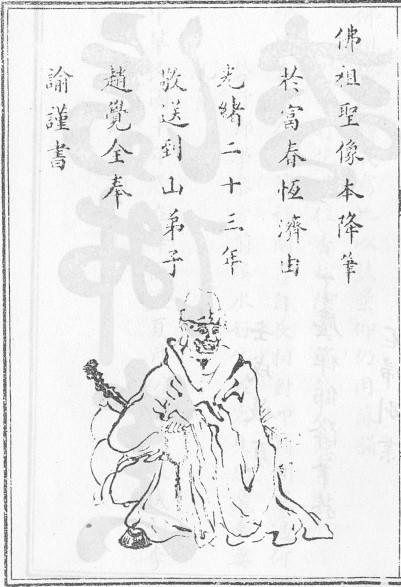 佛祖聖像本降筆
於富春恆濟由
光緒二十三年
敬送到山弟子
趙覺全奉
諭謹書